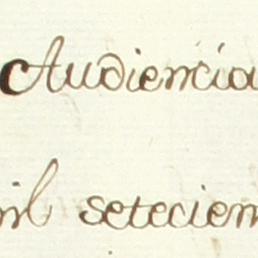 Audiencia
mil setecien